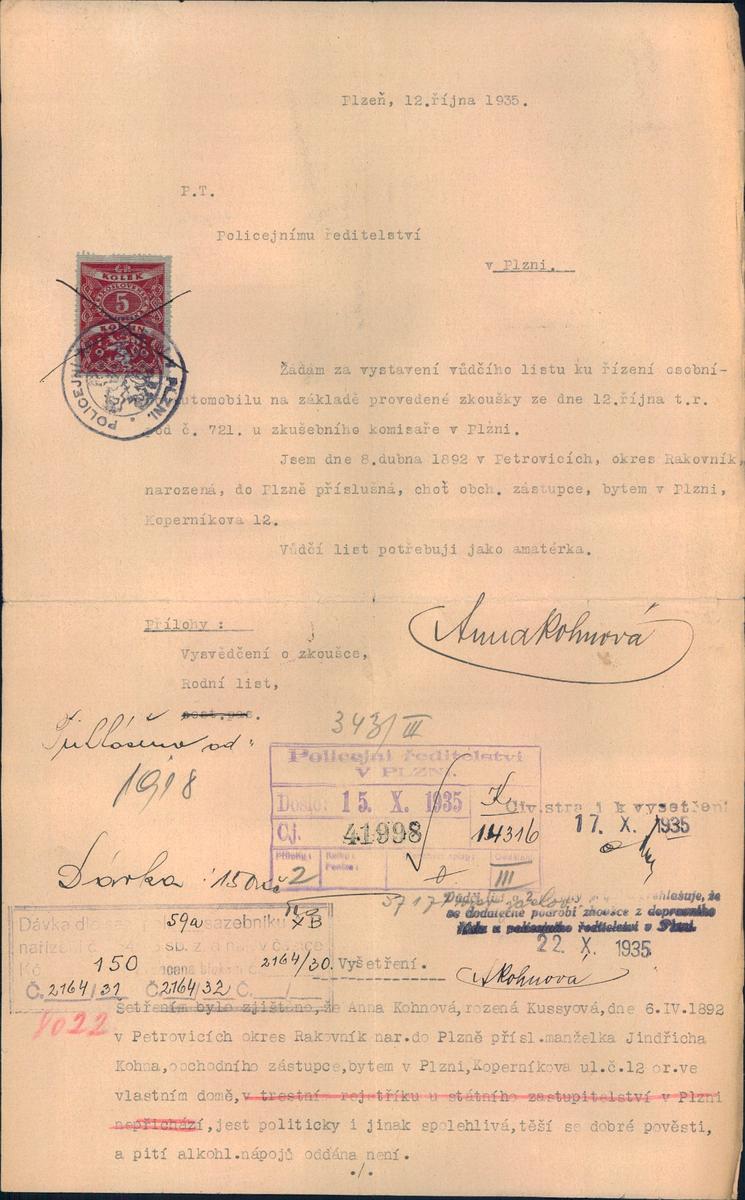 Plzeň, 12.října 1935.
P.T.
Policejnímu ředitelství
v Plzni.
KOLEK
5
KORUN
POLICEJNÍ
V PLZNI.
Žádám za vystavení vůdčího listu ku řízení osobní-
automobilu na základě provedené zkoušky ze dne 12.října t.r.
pod č. 721. u zkušebního komisaře v Plzni.
Jsem dne 8.dubna 1892 v Petrovicích, okres Rakovník,
narozená, do Plzně příslušná, choť obch. zástupce, bytem v Plzni,
Koperníkova 12.
Vůdčí list potřebuji jako amatérka.
Anna Kohnová
Přílohy :
Vysvědčení o zkoušce,
Rodní list,
Přihlášena od
1918
343/III
Policejní ředitelství
V PLZNI.
Došlo: 15. X. 1935
Čj. 41998
14316
Přílohy: 2
III
Civ.stráži k vyšetření
17. X. 1935
Dávka 150 Kč
se dodatečně podrobí zkoušce z dopravního
řádu u policejního ředitelství v Plzni.
22. X. 1935
AKohnová
Dávka dle 59a sazebníku XB
nařízení č.
Kč 150 2164/30.
Č. 2164/31 Č. 2164/32 Č.
8022
Vyšetření.
Šetřením bylo zjištěno, že Anna Kohnová, rozená Kussyová, dne 6.IV.1892
v Petrovicích okres Rakovník nar.do Plzně přísl.manželka Jindřicha
Kohna, obchodního zástupce, bytem v Plzni, Koperníkova ul.č.12 or.ve
vlastním domě, v trestní rejtříku u státního zastupitelství v Plzni
nepřichází, jest politicky i jinak spolehlivá, těší se dobré pověsti,
a pití alkohl.nápojů oddána není.
./.